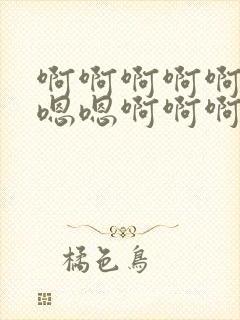 啊啊啊啊啊
嗯嗯啊啊啊
橘色鳥